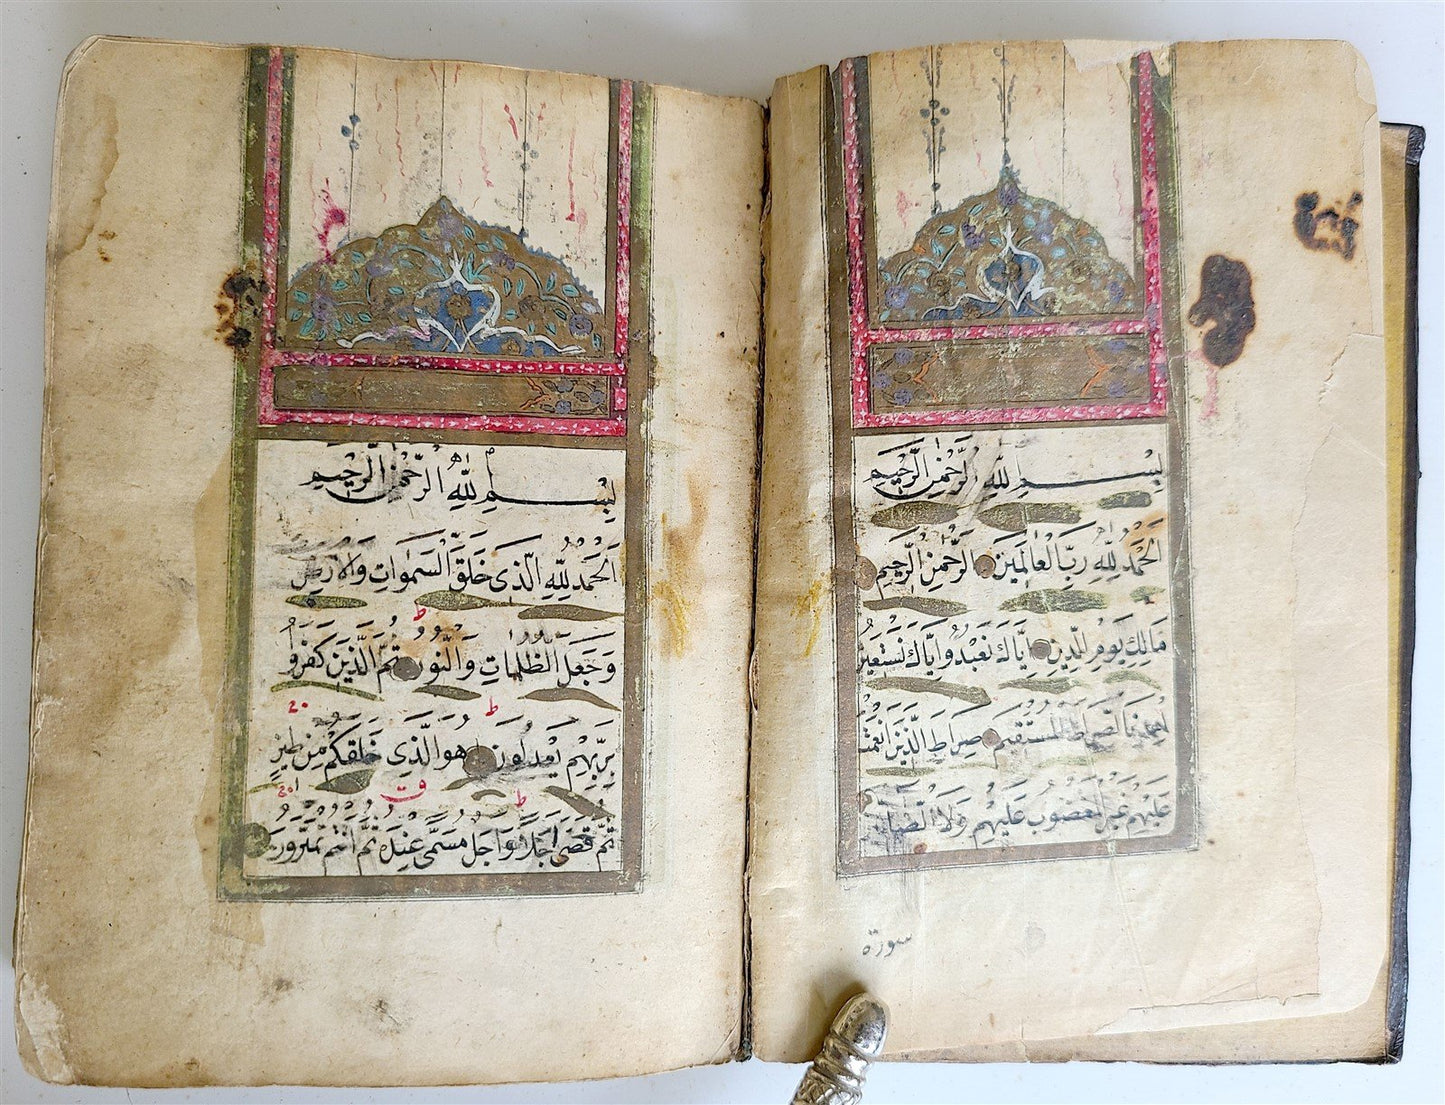 بِسْمِ اللّٰهِ الرَّحْمٰنِ الرَّحِيمِ
اَلْحَمْدُ لِلّٰهِ رَبِّ الْعَالَمِينَ الرَّحْمٰنِ الرَّحِيمِ
مَالِكِ يَوْمِ الدِّينِ اِيَّاكَ نَعْبُدُ وَاِيَّاكَ نَسْتَعِينُ
اِهْدِنَا الصِّرَاطَ الْمُسْتَقِيمَ صِرَاطَ الَّذِينَ اَنْعَمْتَ
عَلَيْهِمْ غَيْرِ الْمَغْضُوبِ عَلَيْهِمْ وَلَا الضَّالِّينَ
سورة
بِسْمِ اللّٰهِ الرَّحْمٰنِ الرَّحِيمِ
اَلْحَمْدُ لِلّٰهِ الَّذِى خَلَقَ السَّمٰوَاتِ وَالْاَرْضَ
وَجَعَلَ الظُّلُمَاتِ وَالنُّورَ ثُمَّ الَّذِينَ كَفَرُوا
بِرَبِّهِمْ يَعْدِلُونَ هُوَ الَّذِى خَلَقَكُمْ مِنْ طِينٍ
ثُمَّ قَضٰى اَجَلًا وَاَجَلٌ مُسَمًّى عِنْدَهُ ثُمَّ اَنْتُمْ تَمْتَرُونَ